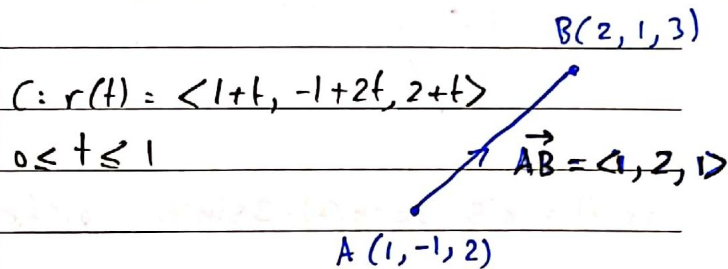 B(2, 1, 3)
C: r(t) = <1+t, -1+2t, 2+t>
0 ≤ t ≤ 1
AB = <1, 2, 1>
A (1, -1, 2)